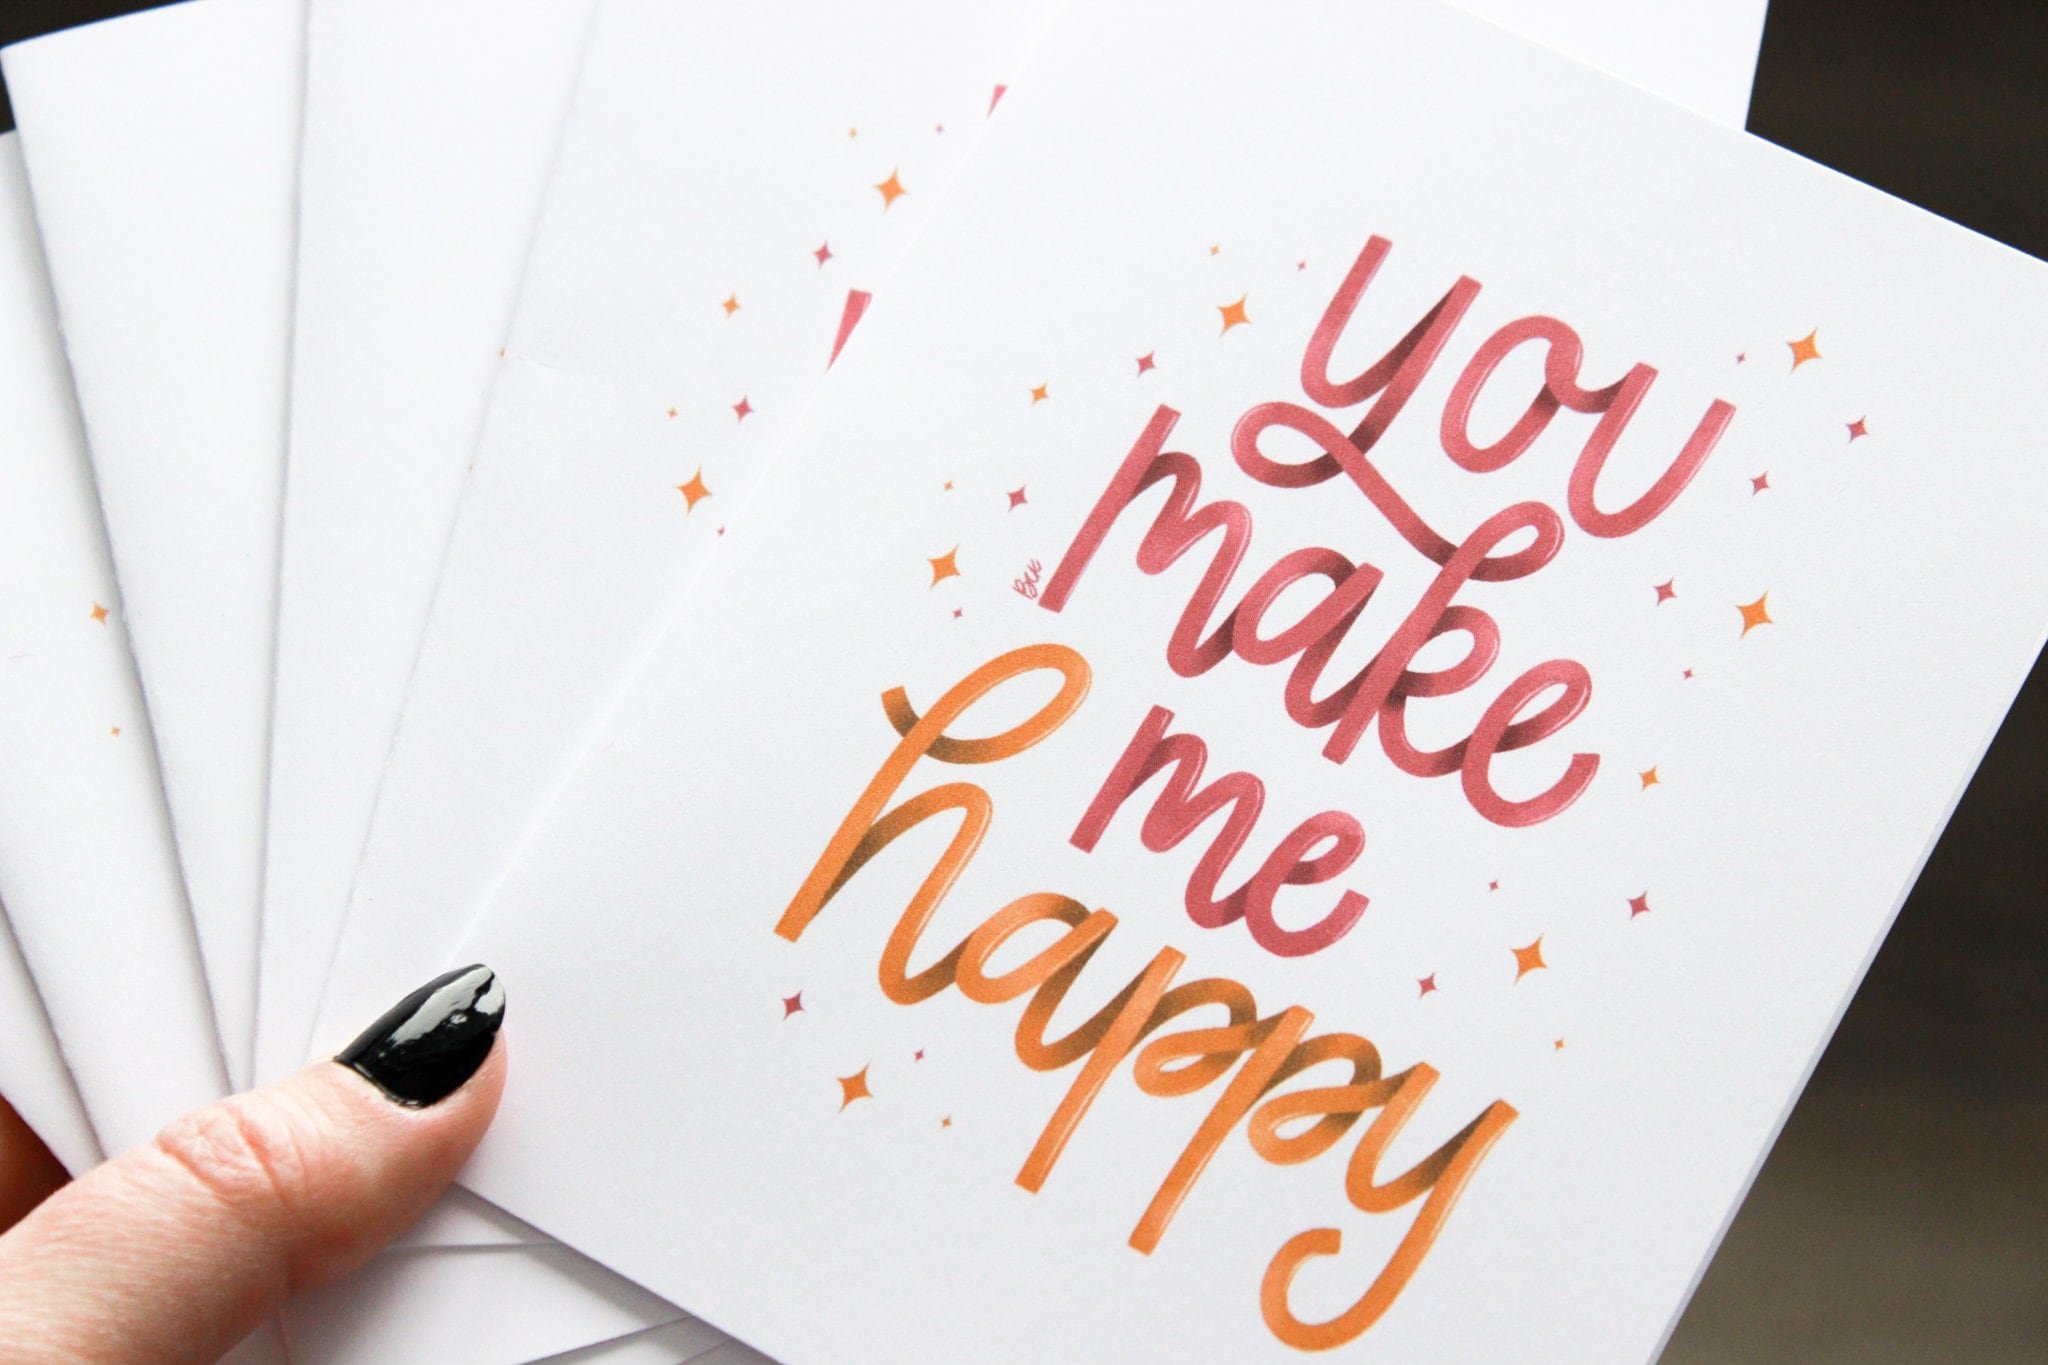 you
make
me
happy